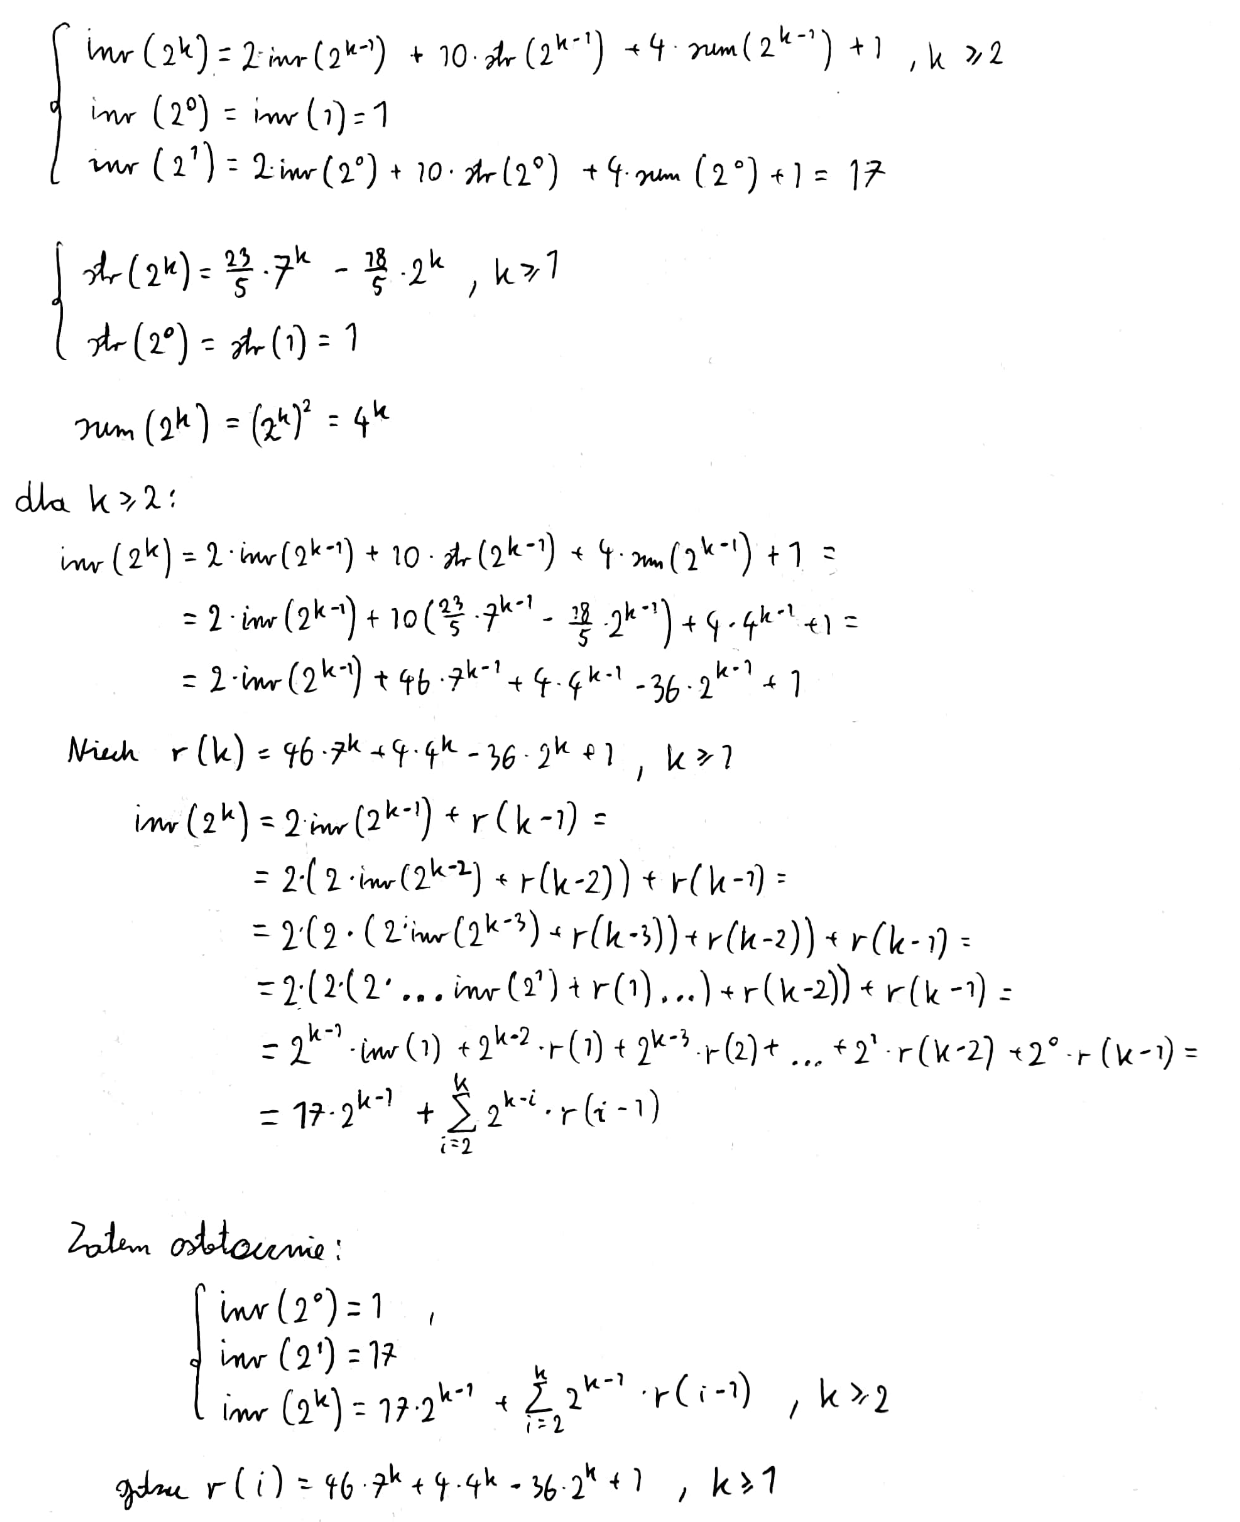 inv(2^k) = 2·inv(2^{k-1}) + 10·str(2^{k-1}) + 4·sum(2^{k-1}) + 1 , k ≥ 2
inv(2^0) = inv(1) = 1
inv(2^1) = 2·inv(2^0) + 10·str(2^0) + 4·sum(2^0) + 1 = 17
str(2^k) = 23/5 · 7^k - 18/5 · 2^k , k ≥ 1
str(2^0) = str(1) = 1
sum(2^k) = (2^k)^2 = 4^k
dla k ≥ 2:
inv(2^k) = 2·inv(2^{k-1}) + 10·str(2^{k-1}) + 4·sum(2^{k-1}) + 1 =
= 2·inv(2^{k-1}) + 10(23/5 · 7^{k-1} - 18/5 · 2^{k-1}) + 4·4^{k-1} + 1 =
= 2·inv(2^{k-1}) + 46·7^{k-1} + 4·4^{k-1} - 36·2^{k-1} + 1
Niech r(k) = 46·7^k + 4·4^k - 36·2^k + 1 , k ≥ 1
inv(2^k) = 2·inv(2^{k-1}) + r(k-1) =
= 2·(2·inv(2^{k-2}) + r(k-2)) + r(k-1) =
= 2·(2·(2·inv(2^{k-3}) + r(k-3)) + r(k-2)) + r(k-1) =
= 2·(2·(2·... inv(2^1) + r(1)...) + r(k-2)) + r(k-1) =
= 2^{k-1}·inv(1) + 2^{k-2}·r(1) + 2^{k-3}·r(2) + ... + 2^1·r(k-2) + 2^0·r(k-1) =
= 17·2^{k-1} + ∑_{i=2}^{k} 2^{k-i}·r(i-1)
Zatem ostatecznie:
inv(2^0) = 1 ,
inv(2^1) = 17
inv(2^k) = 17·2^{k-1} + ∑_{i=2}^{k} 2^{k-1}·r(i-1) , k ≥ 2
gdzie r(i) = 46·7^k + 4·4^k - 36·2^k + 1 , k ≥ 1